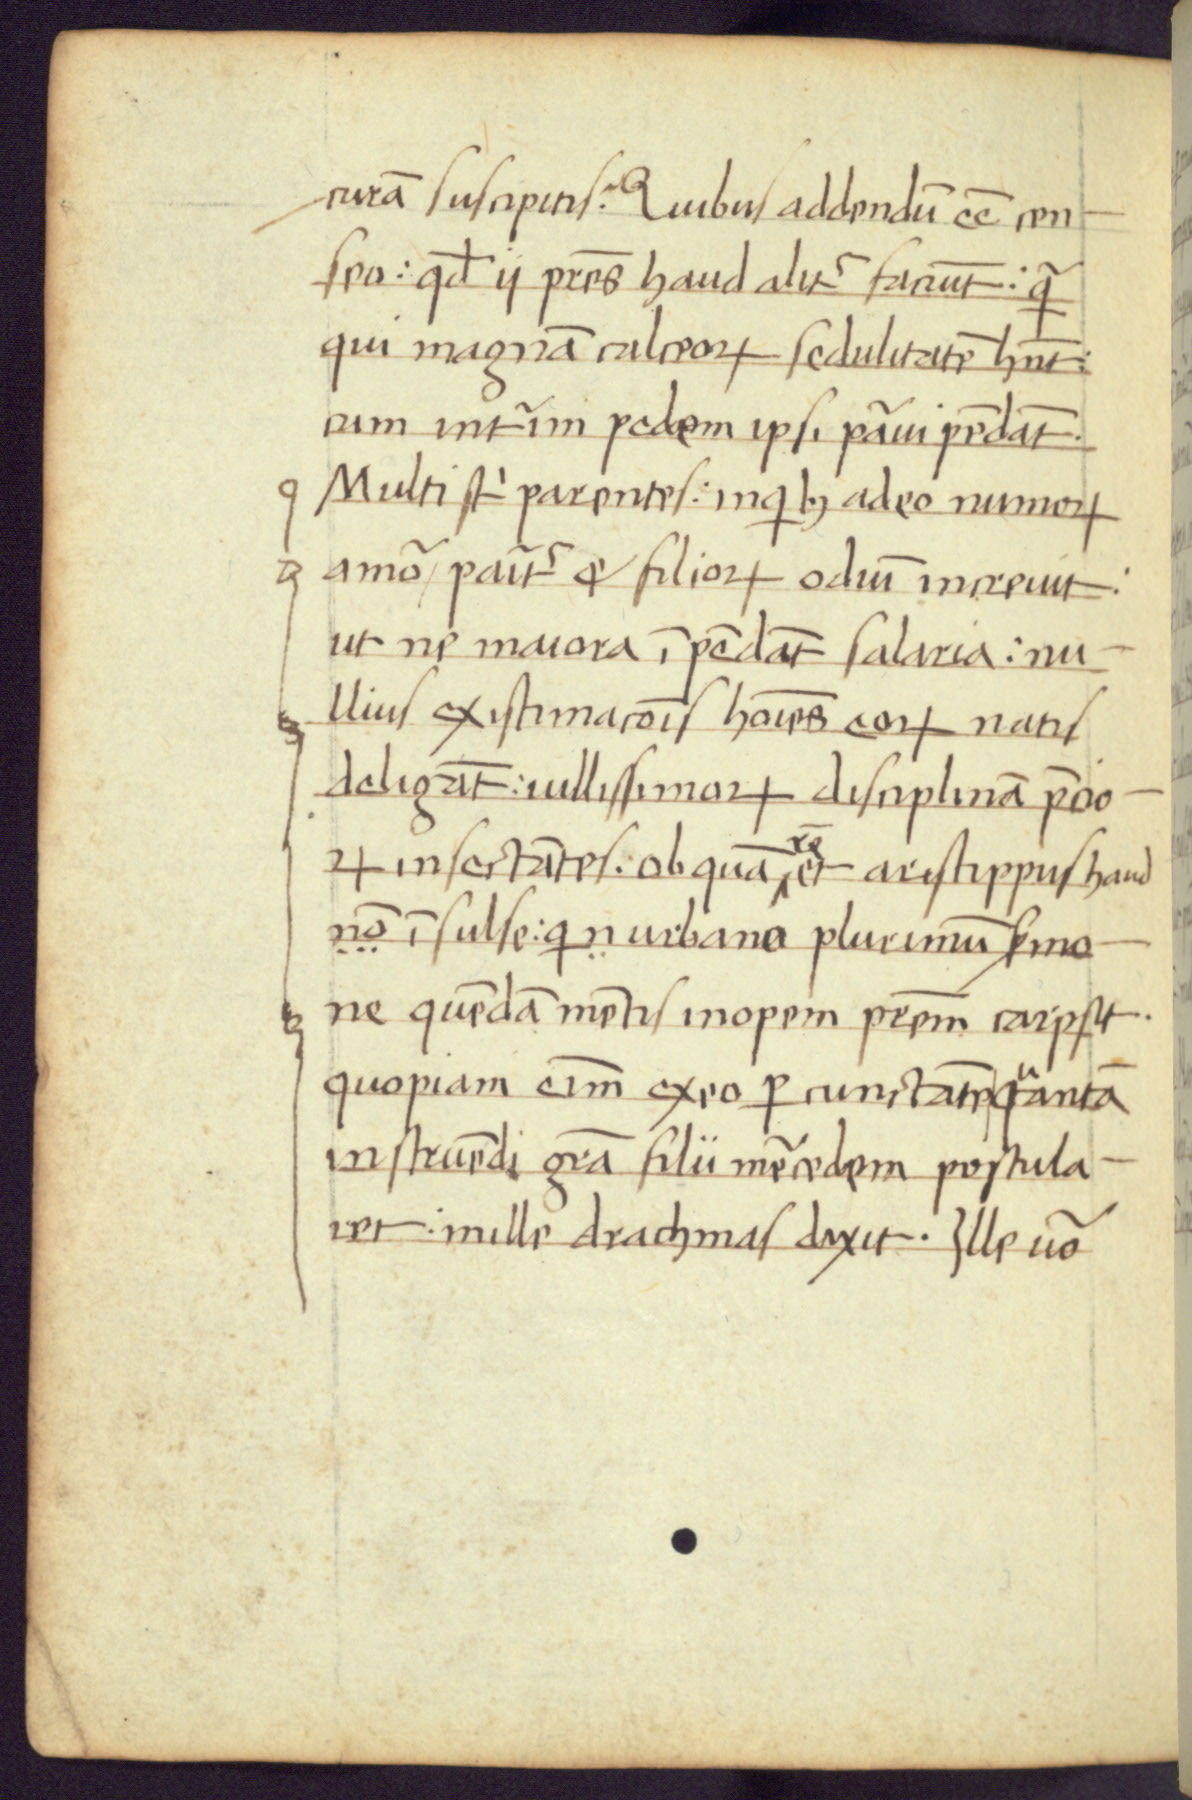 curā suscipitis: Quibus addendū eē cen-
seo: qđ ij pr̄es haud alit̃ faciūt: q̃
qui magnā calceoꝝ sedulitatē hn̄t:
cum int̃im pedem ipsi pãui pēdāt.
Multi st̀ parentes: in qbꝫ adeo numoꝝ
amõ parit̃ & filioꝝ odiū increuit:
ut ne maiora īpēdāt salaria: nu-
llius existimacōis hoīes eoꝝ natis
deligāt: uillissimoꝝ disciplinā p̄cio-
ꝝ insectātes. ob quā rē et aristippus haud
nō īsulse: qn urbano plurimū ẜmo-
ne quēdā mētis inopem prēm carpsit.
quopiam eim̄ exeo ꝑcunctāte quantā
instruēdi grā filii mẽcedem postula-
ret: mille drachmas dixit. Ille uõ